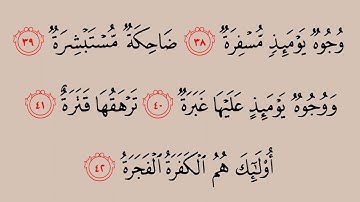 وُجُوهٌ يَوْمَئِذٍ مُّسْفِرَةٌ ٣٨ ضَاحِكَةٌ مُّسْتَبْشِرَةٌ ٣٩
وَوُجُوهٌ يَوْمَئِذٍ عَلَيْهَا غَبَرَةٌ ٤٠ تَرْهَقُهَا قَتَرَةٌ ٤١
أُوْلَٰٓئِكَ هُمُ الْكَفَرَةُ الْفَجَرَةُ ٤٢